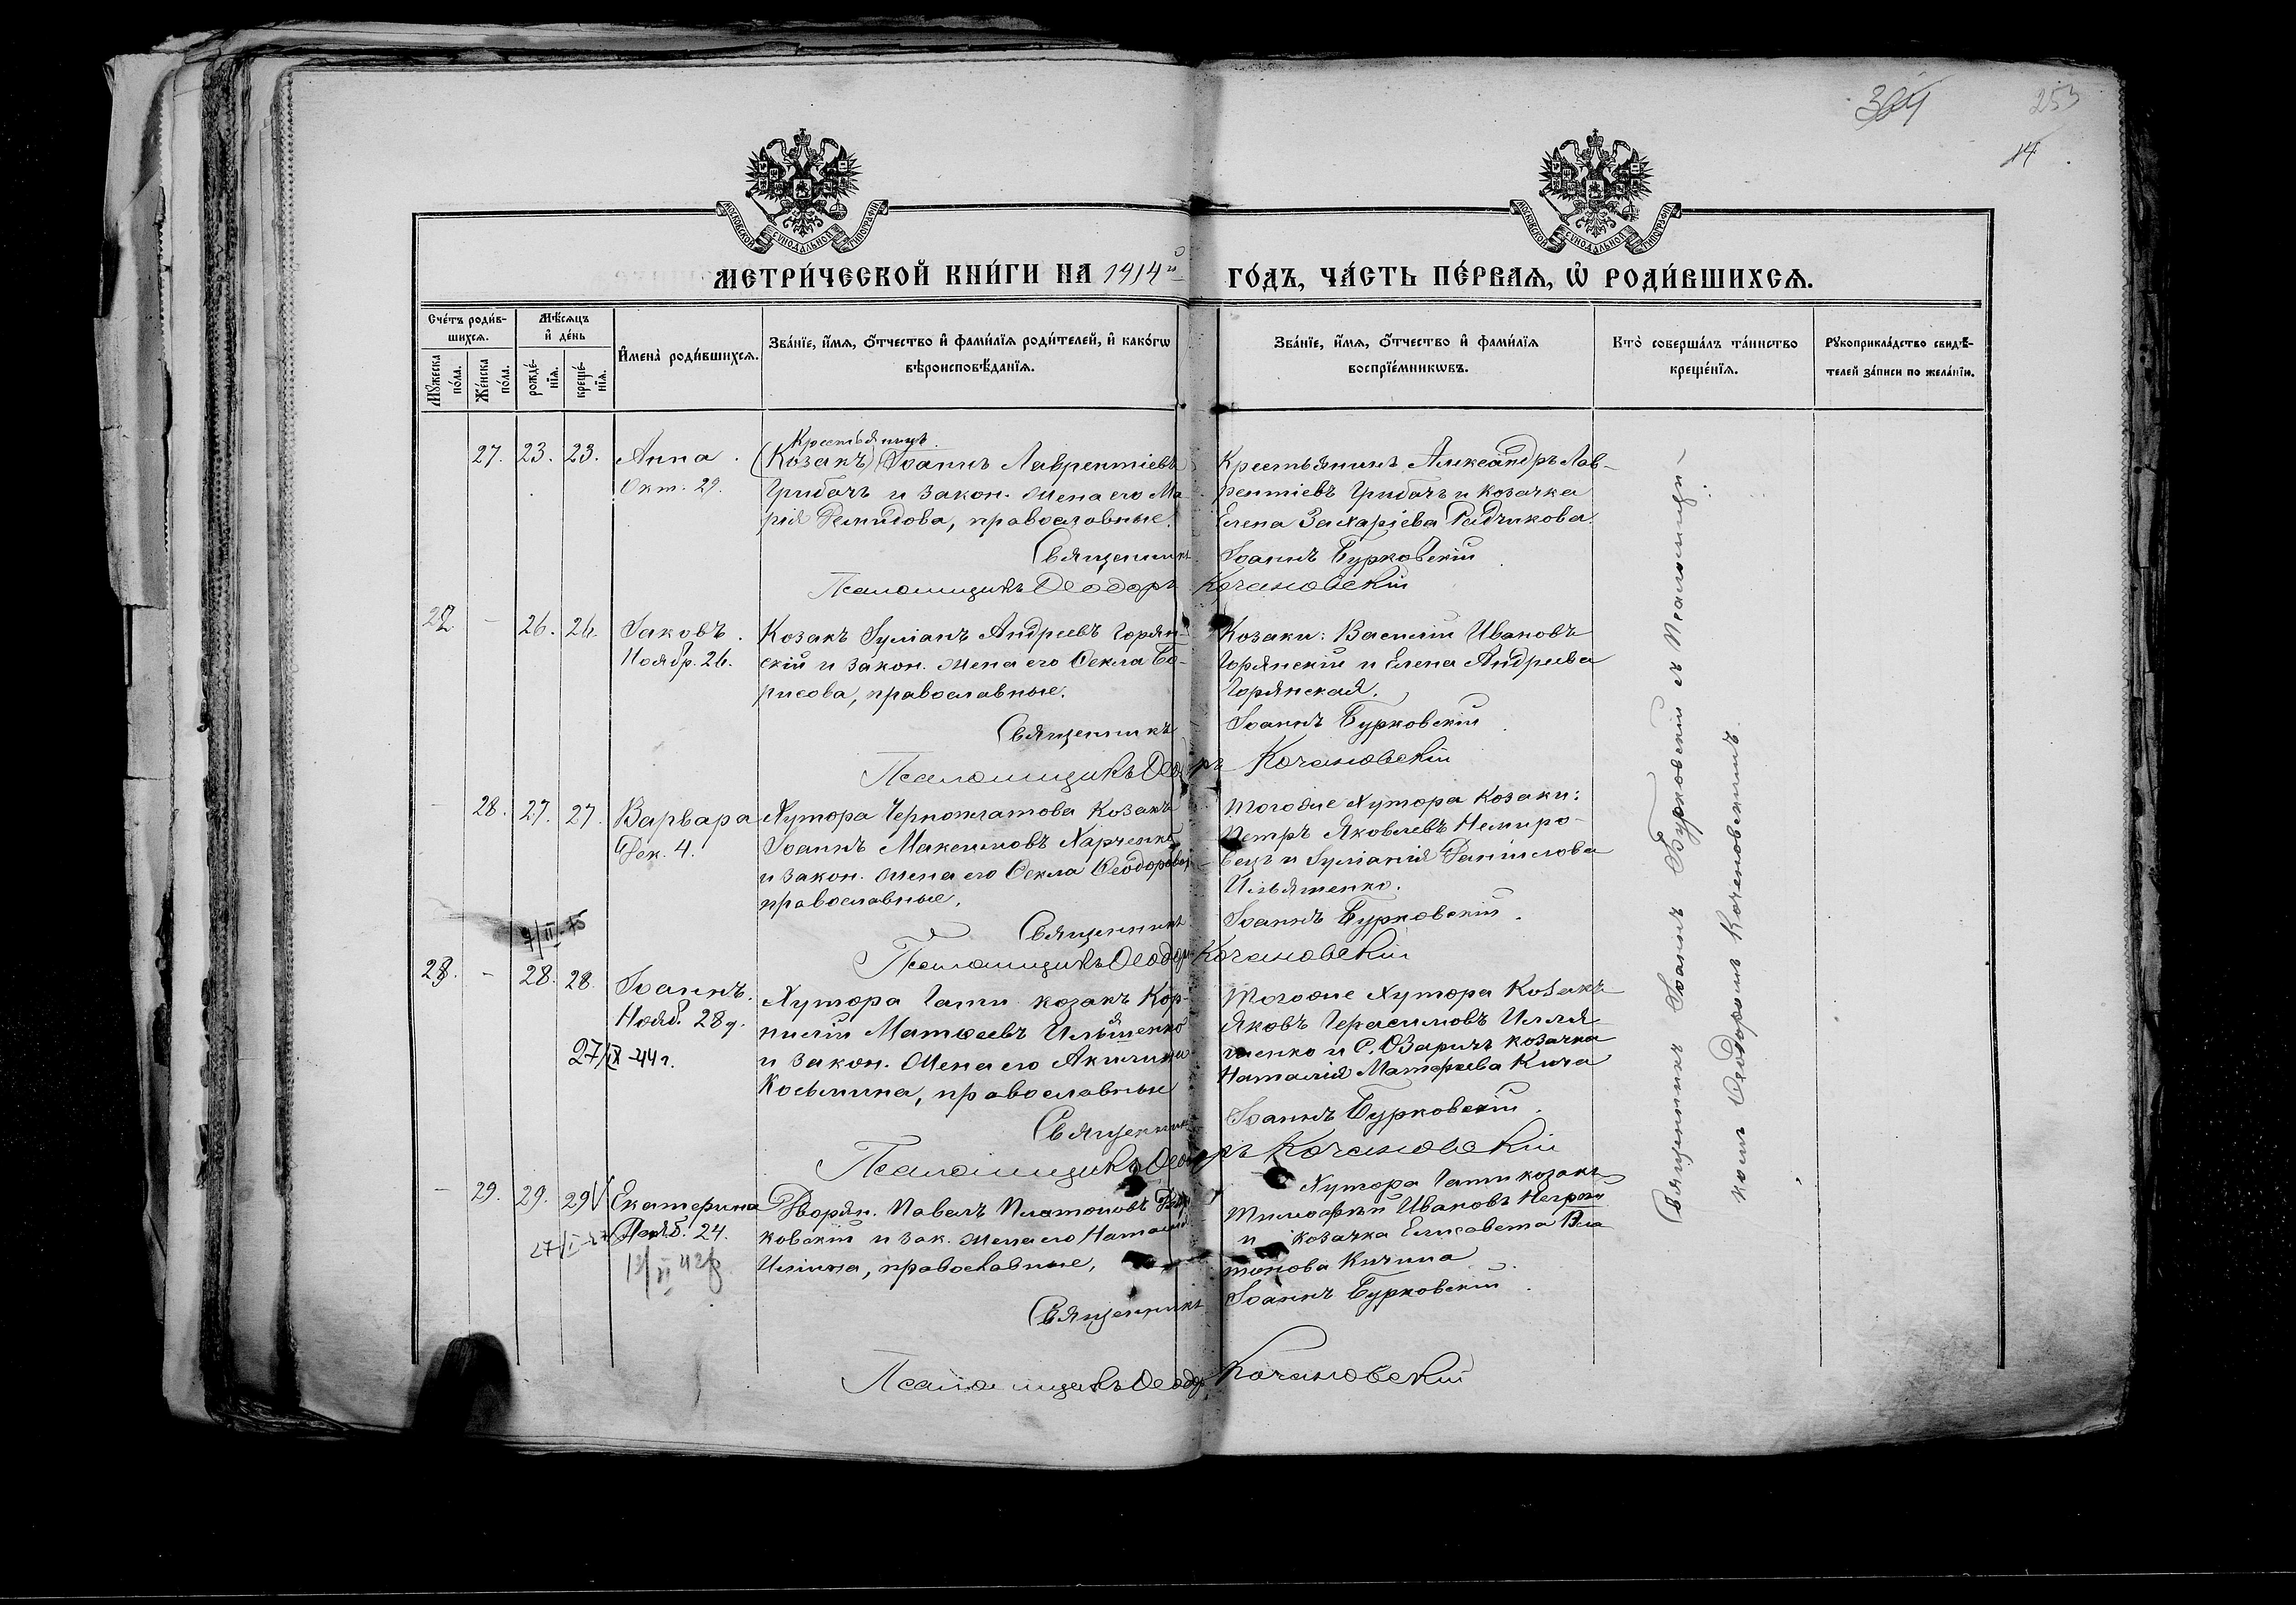 304
253
14
МОСКОВСКОЙ СУНОДАЛЬНОЙ ТИПОГРАФІИ
МОСКОВСКОЙ СУНОДАЛЬНОЙ ТИПОГРАФІИ
МЕТРИ́ЧЕСКОЙ КНИ́ГИ НА 1914й ГО́ДЪ, ЧА́СТЬ ПЕ́РВАѦ, Ѡ҆ РОДИ́ВШИХСѦ.
Сче́тъ роди́в-
шихсѧ.
Мꙋ́жеска по́ла.
Же́нска по́ла.
Мѣ́сѧцъ
и҆ де́нь
рожде́-
нїѧ.
креще́-
нїѧ.
И҆мена̀ роди́вшихсѧ.
Зва́нїе, и҆́мѧ, ѻ҆́тчество и҆ фами́лїѧ роди́телей, и҆ како́гѡ
вѣроисповѣ́данїѧ.
Зва́нїе, и҆́мѧ, ѻ҆́тчество и҆ фами́лїѧ
воспрїе́мникѡвъ.
Кто̀ соверша́лъ та́инство
креще́нїѧ.
Рꙋкоприкла́дство свидѣ́-
телей за́писи по жела́нїю.
27. 23. 23. Анна.
Окт. 29.
Крестьянинъ
(Козакъ) Іоаннъ Лаврентіевъ
Грибачъ и закон. жена его Ма-
рія Демидова, православные.
Крестьянинъ Александръ Лав-
рентіевъ Грибачъ и козачка
Елена Захаріева Радчикова.
Священникъ Іоаннъ Бурковскій
Псаломщикъ Ѳеодоръ Кочановскій
22 - 26. 26. Іаковъ.
Ноябр. 26.
Козакъ Іуліанъ Андреевъ Горян-
скій и закон. жена его Ѳекла Бо-
рисова, православные.
Козаки: Василій Ивановъ
Горянскій и Елена Андреева
Горянская.
Священникъ Іоаннъ Бурковскій
Псаломщикъ Ѳеодоръ Кочановскій
- 28. 27. 27. Варвара
Дек. 4.
Хутора Черноплатова козакъ
Іоаннъ Максимовъ Харченко
и закон. жена его Ѳекла Ѳеодорова,
православные.
Того же хутора козаки:
Петръ Яковлевъ Немиро-
вецъ и Іуліанія Даніилова
Ильяшенко.
Священникъ Іоаннъ Бурковскій.
Псаломщикъ Ѳеодоръ Кочановскій
7/II-75
23. - 28. 28. Іоаннъ.
Нояб. 28 д.
27/IX-44 г.
Хутора Гати козакъ Кор-
нилій Матѳеевъ Ильяшенко
и закон. жена его Акилина
Косьмина, православные
Того же хутора козакъ
Яковъ Герасимовъ Илля-
шенко и С. Озаричъ козачка
Наталія Матѳеева Кича
Священникъ Іоаннъ Бурковскій.
Псаломщикъ Ѳеодоръ Кочановскій
- 29. 29. 29 V Екатерина
Нояб. 24.
Дворян. Павелъ Платоновъ
ковскій и зак. жена его Наталія
Илiина, православные,
Хутора Гати козакъ
Тимоѳей Ивановъ
и козачка Елисавета Пла-
тонова Кичина
Священникъ Іоаннъ Бурковскій.
Псаломщикъ Ѳеодоръ Кочановскій
Священникъ Іоаннъ Бурковскій съ Псаломщи-
комъ Ѳеодоромъ Кочановскимъ.